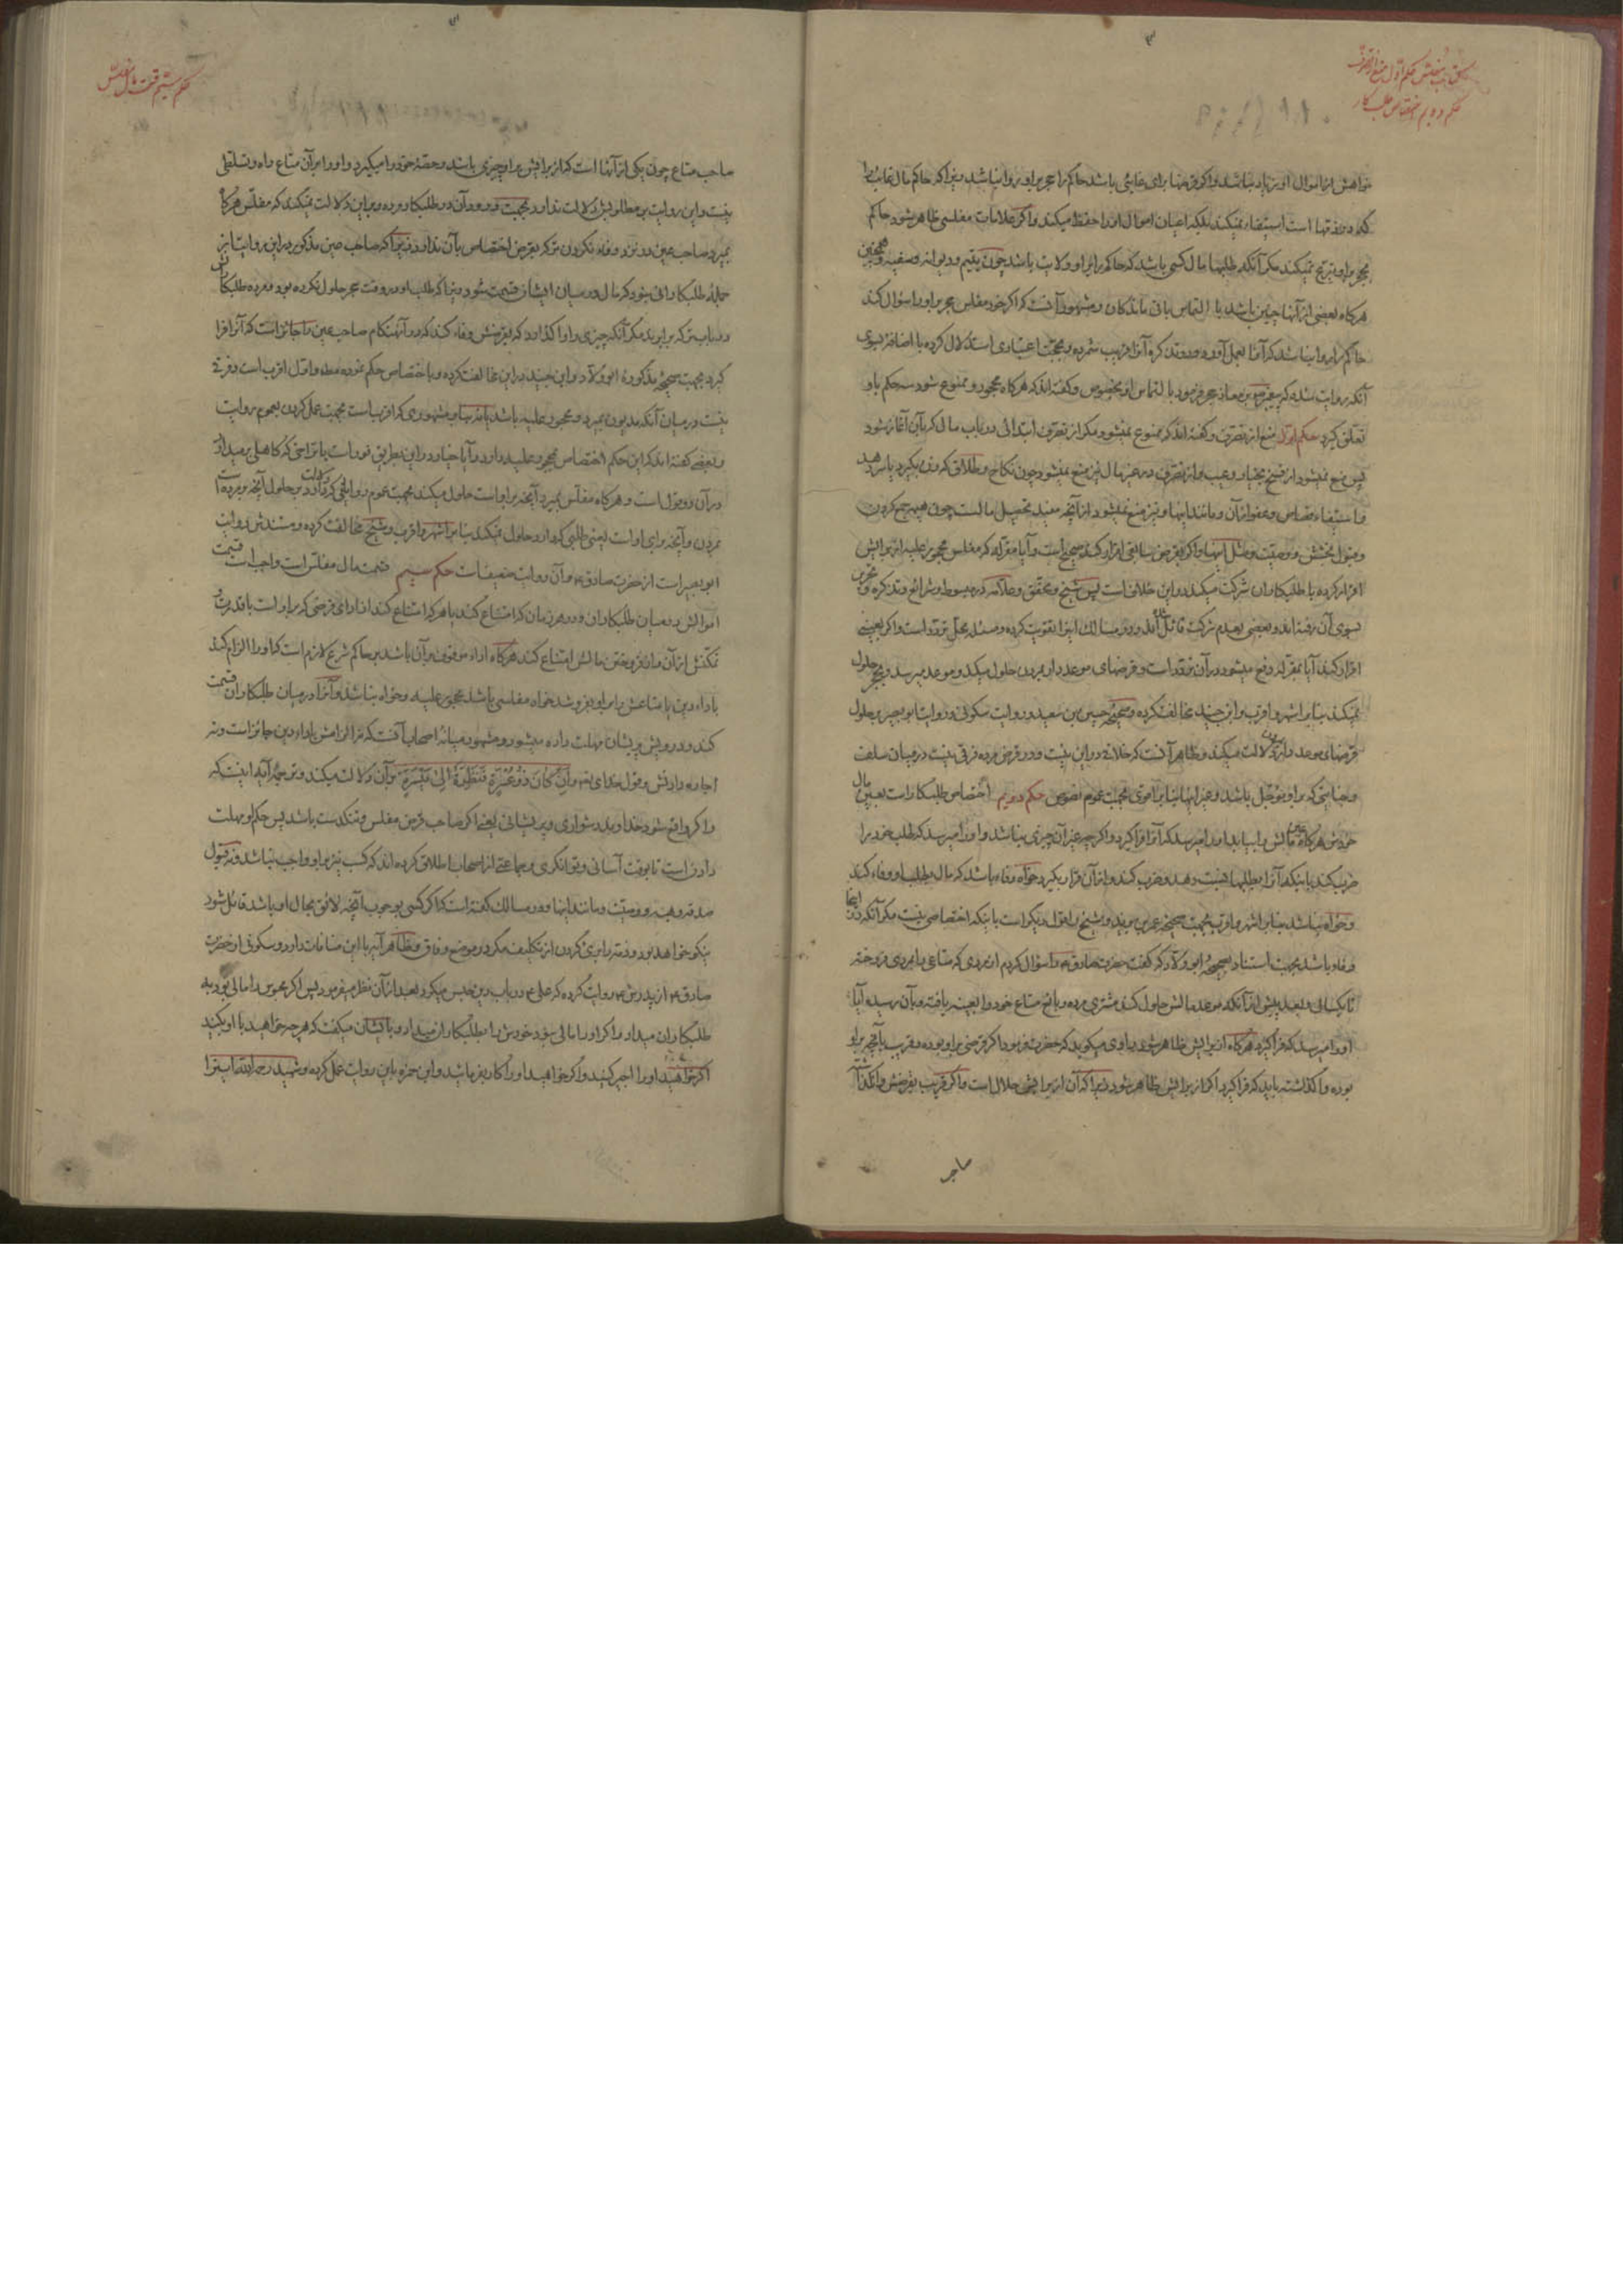 حکم اول منع از تصرف
حکم دویم اختصاص طلبکار
خواهش از اموال او زیاد نباشد و اگر قرضها برای غایبی باشد حاکم را حجر بر او روا نباشد زیرا که حاکم مال غایب را
که در ذمتها است استیفاء نمیکند بلکه اعیان اموال او را حفظ میکند و اگر علامات مفلسی ظاهر شود حاکم
بحجر او تبرع نمیکند مگر آنکه طلبها مال کسی باشد که حاکم را بر او ولایت باشد چون یتیم و دیوانه و سفیه و همچنین
هرگاه بعضی از آنها چنین باشد با التماس باقی ماندگان و مشهور آنست که اگر خود مفلس حجر بر او را سؤال کند
حاکم را روا نباشد که آنرا بعمل آورد و در تذکره آنرا قریب شمرده و بحجت اعتباری استدلال کرده با اضافه بسوی
آنکه روایت شده که پیغمبر بر معاذ حجر فرمود بالتماس او بخصوص و گفته اند که هرگاه محجور و ممنوع شود سه حکم باو
تعلق گیرد حکم اول منع از تصرف و گفته اند که ممنوع نمیشود مگر از تصرف ابتدائی در باب مال که بآن آغاز شود
پس منع نمیشود از فسخ بخیار و عیب و از تصرف در غیر مال نیز منع نمیشود چون نکاح و طلاق که زن بگیرد یا سر دهد
و استیفاء قصاص و عفو از آن و مانند اینها و نیز منع نمیشود از آنچه مفید تحصیل مالست چون هیزم جمع کردن
و قبول بخشش و وصیت و مثل اینها و اگر بقرض سابقی اقرار کند صحیح است و آیا مقرله که مفلس محجور علیه از برایش
اقرار کرده با طلبکاران شرکت میکند در این خلاف است پس شیخ و محقق و علامه در مبسوط و شرائع و تذکره و تحریر
بسوی آن رفته اند و بعضی بعدم شرکت قائل شده اند و در مسالک اینرا تقویت کرده و مسئله محل تردد است و اگر بعینی
اقرار کند آیا بمقرله دفع میشود در آن تردد است و قرضهای موعددار بمردن حلول میکند و موعد میرسد و بحجر حلول
نمیکند بنا بر اشهر و اقرب و ابن جنید مخالفت کرده و صحیحه حسین بن سعید و روایت سکونی و روایت ابوبصیر بر حلول
قرضهای موعددار بمردن دلالت میکند و ظاهر آنست که خلافی در این نیست و در قرض مرده فرقی نیست در میان سلف
و جنایتی که بر او مؤجل باشد و غیر اینها بنا بر اقوی بجهت عموم نصوص حکم دویم اختصاص طلبکار است بعین مال
خودش هرگاه مالش را بیابد او را میرسد که آنرا فراگیرد و اگر چه غیر آن چیزی نباشد و او را میرسد که طلب خود را
ضرب کند باینکه آنرا بطلبها نسبت دهد و ضرب کند و از آن قرار بگیرد خواه وفاء باشد که مال بطلب او وفاء کند
و خواه نباشد بنا بر اشهر و اقرب بجهت صحیحه عمر بن یزید و شیخ را قول دیگر است باینکه اختصاصی نیست مگر آنکه در اینجا
وفاء باشد بجهت استناد بصحیحه ابو ولاد که گفت حضرت صادق ع را سؤال کردم از مردی که متاعی را بمردی فروخته
تا یکسالی و بعد پیش از آنکه موعد مالش حلول کند مشتری مرده و بایع متاع خود را بعینه یافته و بآن رسیده آیا
او را میرسد که فراگیرد هرگاه از برایش ظاهر شود راوی میگوید که حضرت فرمود اگر قرضی بر او بوده و قریب بآنچه بر او
بوده واگذاشته باید که فراگیرد اگر از برایش ظاهر شود زیرا که آن از برایش حلال است و اگر قریب بقرضش وانگذاشته
صاحب
حکم سیم قسمت مال مفلس
صاحب متاع چون یکی از آنها است که از برایش بر او چیزی باشد و حصه خود را میگیرد و او را بر آن متاع راه و تسلطی
نیست و این روایت بر مطلوبش دلالت ندارد بجهت ورود آن در طلبکار مرده و بر این دلالت نمیکند که مفلس هرگاه
بمیرد صاحب عین در نزد وفاء نکردن ترکه بقرض اختصاص بآن ندارد زیرا که صاحب عین مذکور در این روایت از
جمله طلبکارانی نبود که مال در میان ایشان قسمت شود زیرا که طلب او در وقت حجر حلول نکرده بود و مرده طلبکارش
در باب ترکه برابرند مگر آنکه چیزی را واگذارد که بقرضش وفاء کند که در آنهنگام صاحب عین را جائز است که آنرا فرا
گیرد بجهت صحیحه مذکوره ابو ولاد و ابن جنید در این مخالفت کرده و باختصاص حکم نموده مطلقا و اول اقرب است و فرقی
نیست در میان آنکه مدیون بمیرد و محجور علیه باشد یا نه بنا بر مشهوری که اقرب است بجهت عمل کردن بعموم روایت
و بعضی گفته اند که این حکم اختصاص بمحجور علیه دارد و آیا خیار در این بطریق فور است یا تراخی که کاهلی بعید از
در آن دو قول است و هرگاه مفلس بمیرد آنچه بر او است حلول میکند بجهت عموم روایتی که دلالت دارد بر حلول آنچه بر مرده است
بمردن و آنچه برای او است یعنی طلبی که دارد حلول نمیکند بنا بر اشهر و اقرب و شیخ مخالفت کرده و مستندش روایت
ابوبصیر است از حضرت صادق ع و آن روایت ضعیف است حکم سیم قسمت مال مفلس است واجب است قسمت
اموالش در میان طلبکاران و در هر زمان که امتناع کند یا هر که امتناع کند از ادای قرضی که بر او است با قدرت و
تمکنش از آن و از فروختن مالش امتناع کند هرگاه اداء موقوف بر آن باشد بر حاکم شرع لازم است که او را الزام کند
باداء دین یا متاعش را بر او بفروشد خواه مفلسی باشد محجور علیه و خواه نباشد و آنرا در میان طلبکاران قسمت
کند و درویش پریشان مهلت داده میشود و مشهور میانه اصحاب آنست که نه الزامش باداء دین جائز است و نه
اجاره دادنش و قول خدای تع وَاِنْ كَانَ ذُو عُسْرَةٍ فَنَظِرَةٌ اِلىٰ مَيْسَرَةٍ بر آن دلالت میکند و ترجمه آیه اینست که
و اگر واقع شود خداوند دشواری و پریشانی یعنی اگر صاحب قرض مفلس و تنگدست باشد پس حکم او مهلت
دادن است تا بوقت آسانی و توانگری و جماعتی از اصحاب اطلاق کرده اند که کسب نیز بر او واجب نباشد و نه قبول
صدقه و هبه و وصیت و مانند اینها و در مسالک گفته است که اگر کسی بوجوب آنچه لائق بحال او باشد قائل شود
نیکو خواهد بود و ذمه را بری کردن از تکلیف مگر در موضع وفاق و ظاهر آیه با این منافات دارد و سکونی از حضرت
صادق ع از پدرش ع روایت کرده که علی ع در باب دین حبس میکرد و بعد از آن نظر میفرمود پس اگر مدیون را مالی بود به
طلبکاران میداد و اگر او را مالی نبود خودش را بطلبکاران میداد و بایشان میگفت که هر چه خواهید با او بکنید
اگر خواهید او را اجیر کنید و اگر خواهید او را کار بفرمائید و ابن حمزه باین روایت عمل کرده و شهید رحمه الله اینرا